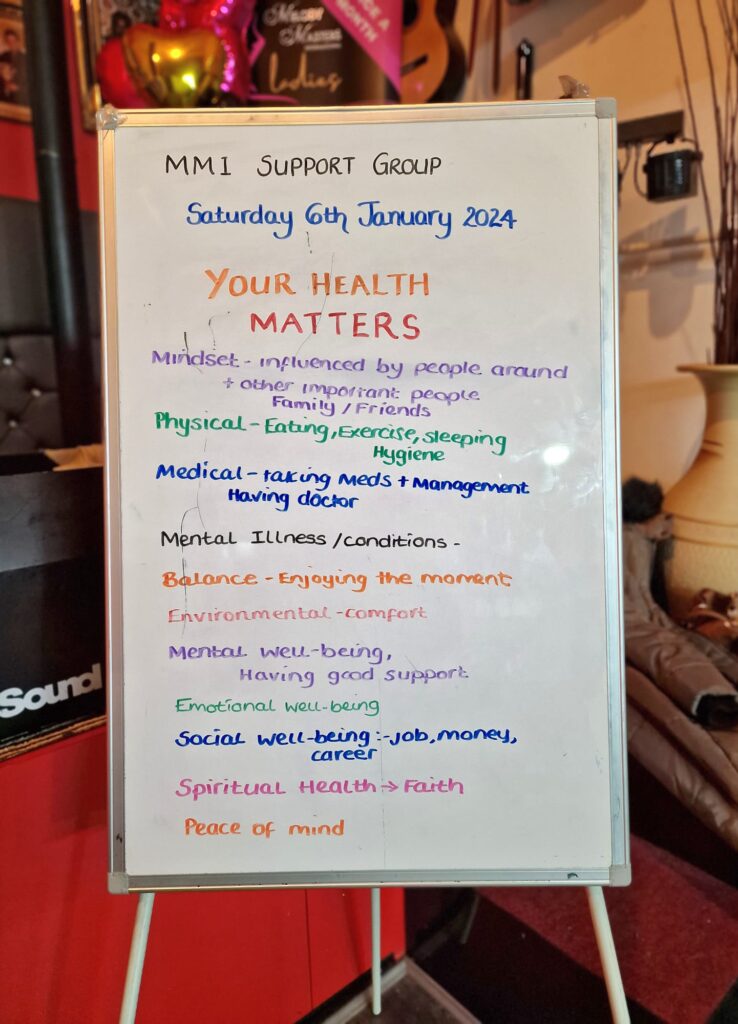 A MONTH
Masters
Ladies
MMI SUPPORT GROUP
Saturday 6th January 2024
YOUR HEALTH
MATTERS
Mindset - influenced by people around
+ other important people
Family / Friends
Physical - Eating, Exercise, sleeping
Hygiene
Medical - taking Meds + Management
Having doctor
Mental Illness / conditions -
Balance - Enjoying the moment
Environmental - comfort
Mental well-being,
Having good support
Emotional well-being
Social well-being :- job, money,
career
Spiritual Health → Faith
Peace of mind
Sound